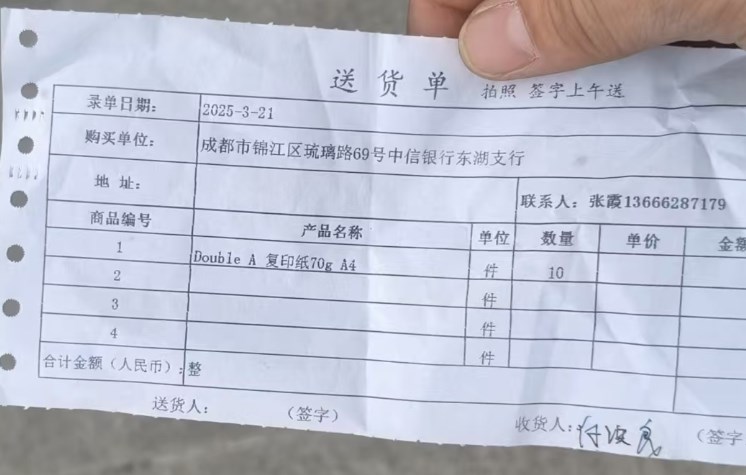 送货单 拍照 签字上午送
录单日期: 2025-3-21
购买单位: 成都市锦江区琉璃路69号中信银行东湖支行
地 址: 联系人: 张霞13666287179
商品编号 产品名称 单位 数量 单价 金额
1 Double A 复印纸70g A4 件 10
2 件
3 件
4 件
合计金额(人民币): 整
送货人: (签字) 收货人: (签字